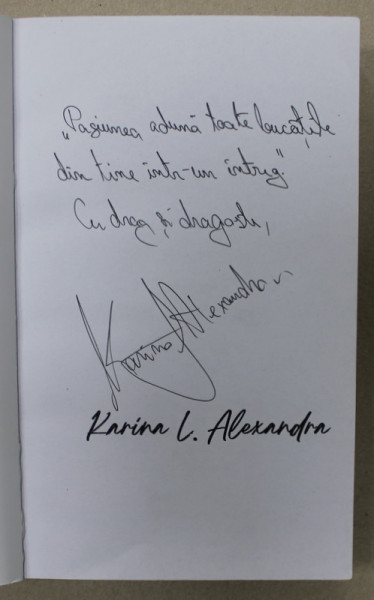 „Pasiunea adună toate bucățile
din tine într-un întreg."
Cu drag și dragoste,
Karina Alexandra
Karina L. Alexandra